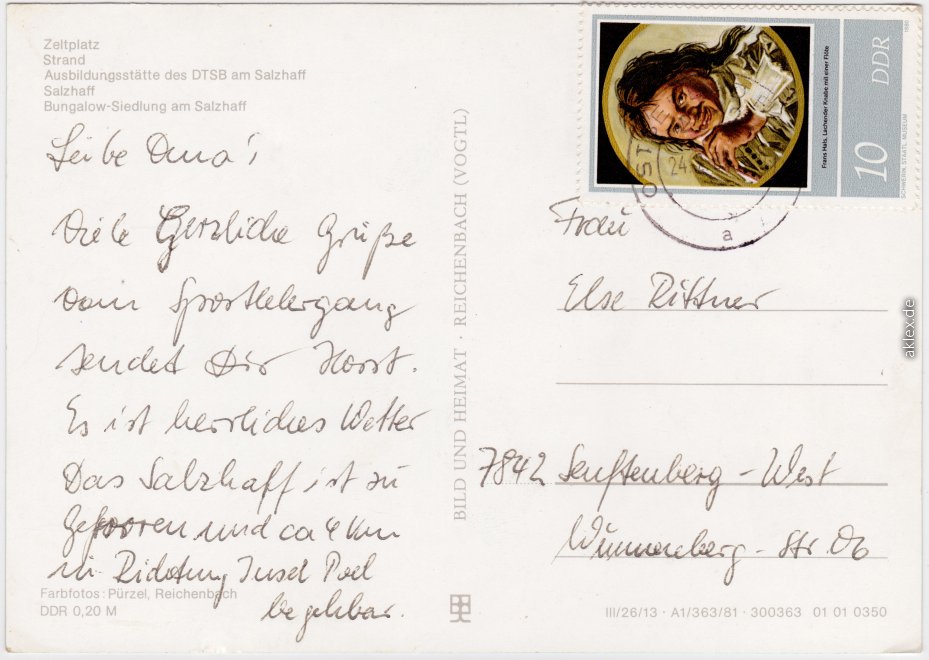 Zeltplatz
Strand
Ausbildungsstätte des DTSB am Salzhaff
Salzhaff
Bungalow-Siedlung am Salzhaff
Liebe Oma!
Viele Herzliche Grüße
vom Sportlehrgang
sendet Dir Horst.
Es ist herrliches Wetter
Das Salzhaff ist zu
gefrooren und ca 4 km
in Richtung Insel Poel
begehbar.
Farbfotos: Pürzel, Reichenbach
DDR 0,20 M
BILD UND HEIMAT · REICHENBACH (VOGTL)
Frans Hals, Lachender Knabe mit einer Flöte
DDR
10
1980
SCHWERIN, STAATL. MUSEUM
24
a
Frau
Else Rittner
7842 Senftenberg - West
Str.
III/26/13 · A1/363/81 · 300363 01 01 0350
aklex.de